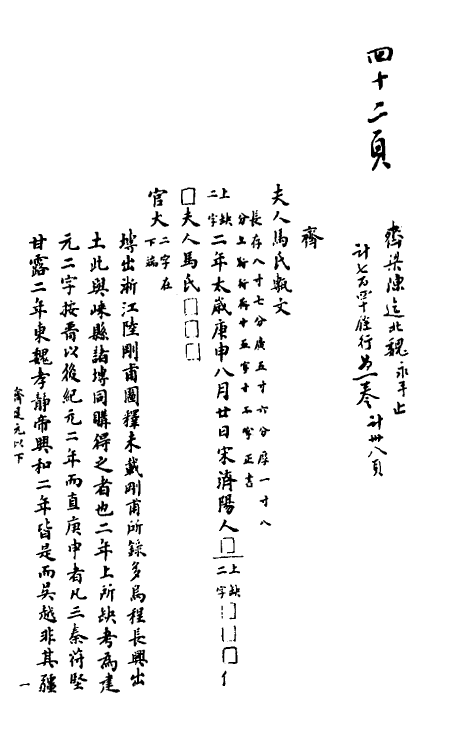 四十二頁
齊梁陳迄北魏永平止
計七百四十餘行為一卷 計卅八頁
齊
夫人馬氏甎文
長存八寸七分廣五寸六分厚一寸八
分上行存十五字十字正書
上缺二字二年太歲庚申八月廿日宋濟陽人□上缺二字□□□
官大二字在下端
□夫人馬氏□□□
塼出浙江陸剛甫圖釋未載剛甫所錄多烏程長興出
土此與嵊縣諸塼同購得之者也二年上所缺考為建
元二字按晉以後紀元二年而直庚申者凡三秦苻堅
甘露二年東魏孝靜帝興和二年皆是而吳越非其疆
齊建元以下
一